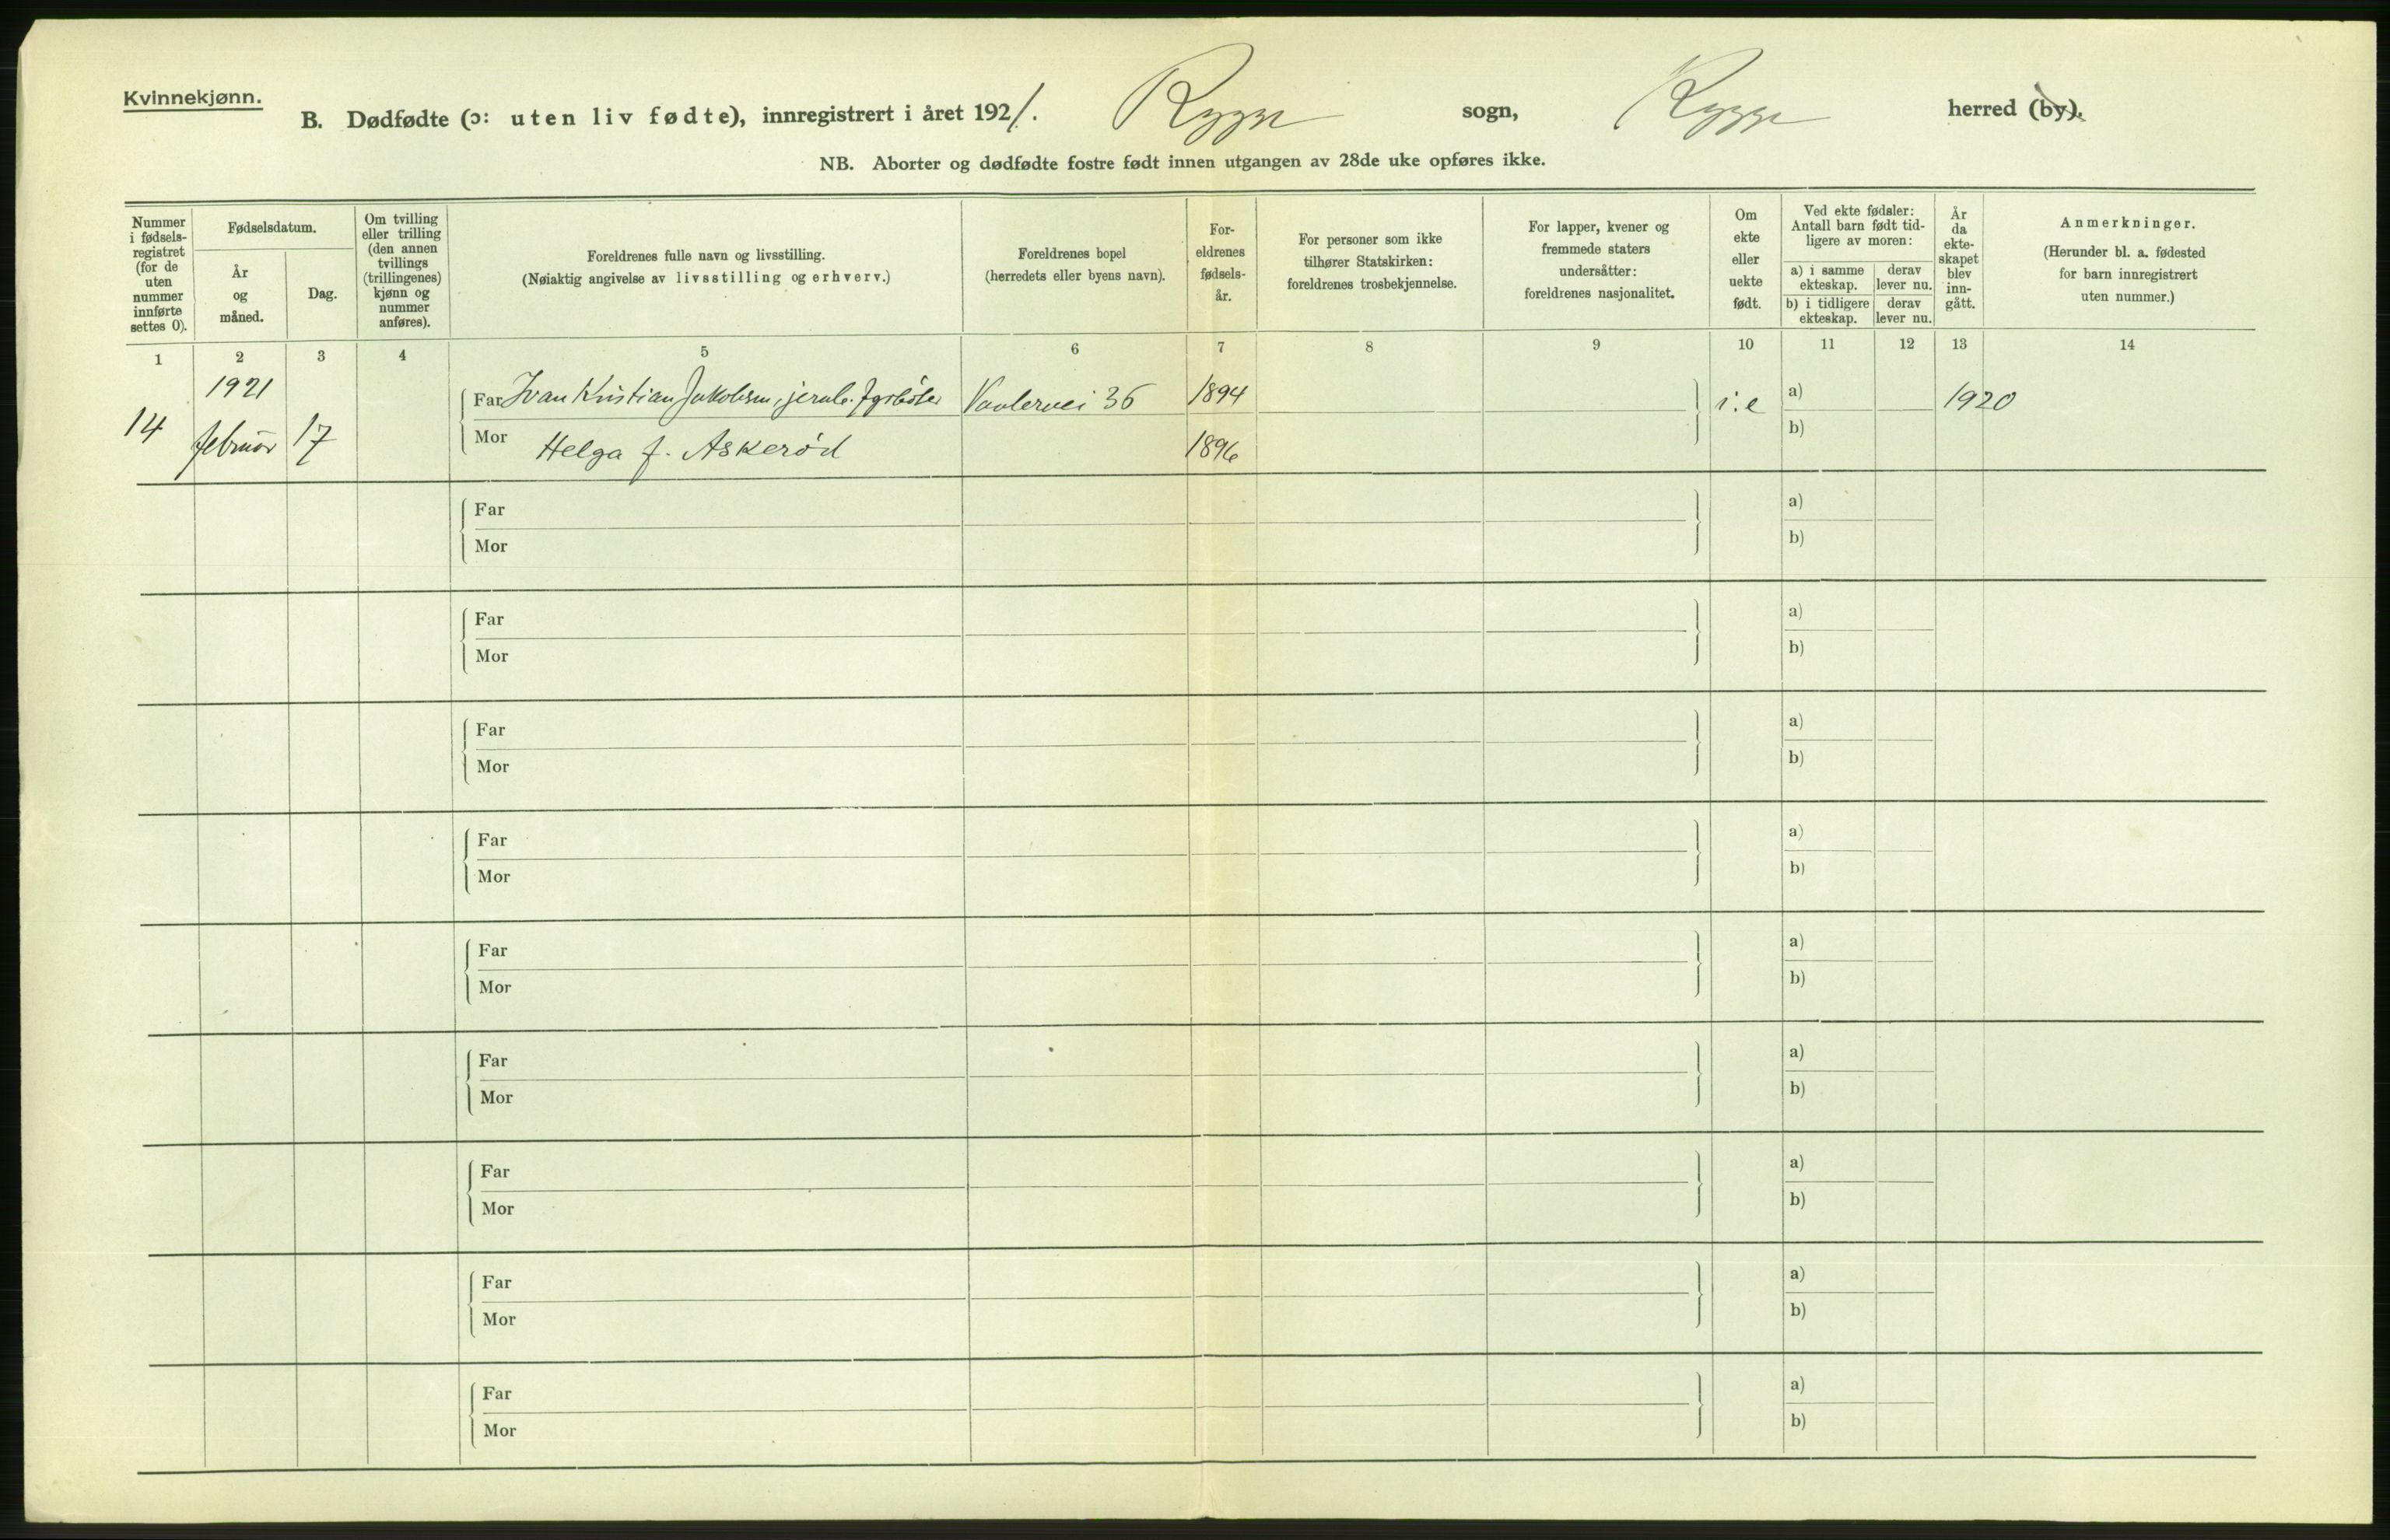 Kvinnekjønn.
B. Dødfødte (ɔ: uten liv fødte), innregistrert i året 1921. Rygge sogn, Rygge herred (by).
NB. Aborter og dødfødte fostre født innen utgangen av 28de uke opføres ikke.
Nummer
i fødsels-
registret
(for de
uten
nummer
innførte
settes 0).
Fødselsdatum.
År
og
måned.
Dag.
Om tvilling
eller trilling
(den annen
tvillings
(trillingenes)
kjønn og
nummer
anføres).
Foreldrenes fulle navn og livsstilling.
(Nøiaktig angivelse av livsstilling og erhverv.)
Foreldrenes bopel
(herredets eller byens navn).
For-
eldrenes
fødsels-
år.
For personer som ikke
tilhører Statskirken:
foreldrenes trosbekjennelse.
For lapper, kvener og
fremmede staters
undersåtter:
foreldrenes nasjonalitet.
Om
ekte
eller
uekte
født.
Ved ekte fødsler:
Antall barn født tid-
ligere av moren:
a) i samme
ekteskap.
derav
lever nu.
b) i tidligere
ekteskap.
derav
lever nu.
År
da
ekte-
skapet
blev
inn-
gått.
Anmerkninger.
(Herunder bl. a. fødested
for barn innregistrert
uten nummer.)
1 2 3 4 5 6 7 8 9 10 11 12 13 14
1921
Far Ivan Kristian Jakobsen, jernb. fyrbøter Vaalervei 36 1894 i:e a) 1920
14 februar 17
Mor Helga f. Askerød 1896 b)
Far a)
Mor b)
Far a)
Mor b)
Far a)
Mor b)
Far a)
Mor b)
Far a)
Mor b)
Far a)
Mor b)
Far a)
Mor b)
Far a)
Mor b)
Far a)
Mor b)